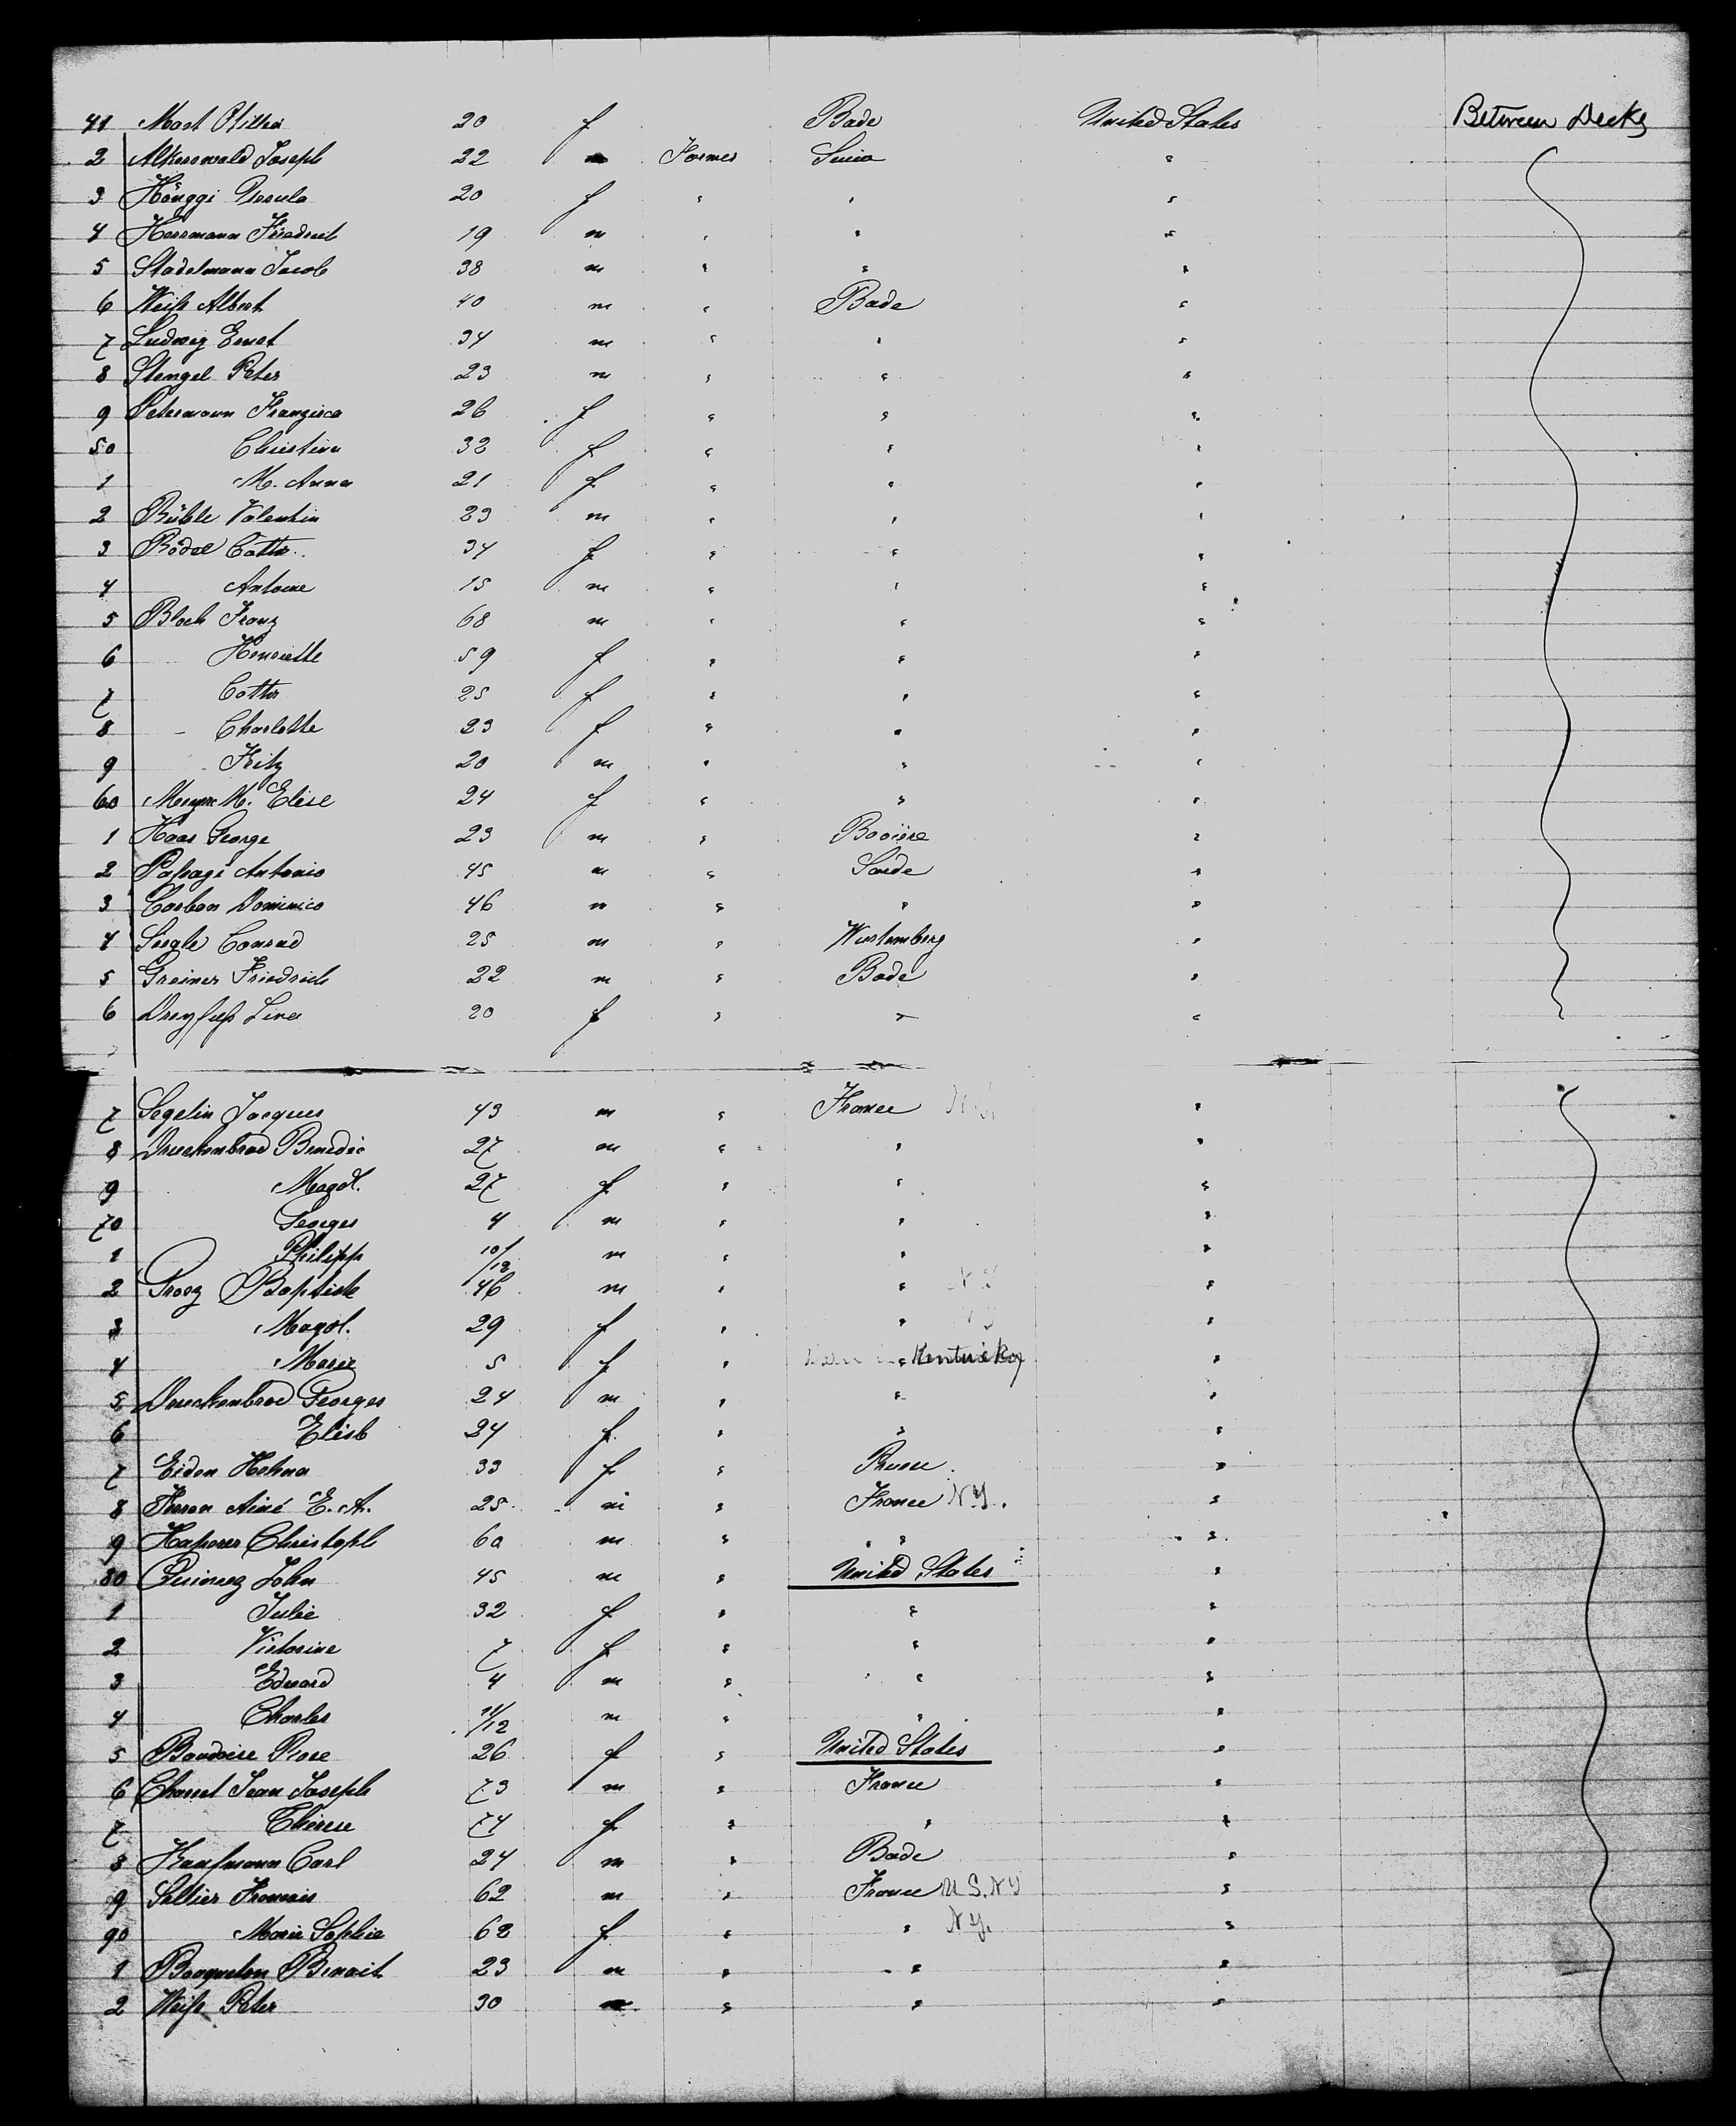 41 Mast Otillia 20 f Bade United States Between Decks
2 Alkerswald Joseph 22 m Farmer Suisse "
3 Hänggi Ursula 20 f " " "
4 Herrmann Friedrich 19 m " " "
5 Stadelmann Jacob 38 m " " "
6 Weiß Albert 40 m " Bade "
7 Ludwig Ernst 34 m " " "
8 Stengel Peter 23 m " " "
9 Petermann Franzisca 26 f " " "
50 Christina 32 f " " "
1 M. Anna 21 f " " "
2 Bühle Valentin 23 m " " "
3 Rödel Cath. 34 f " " "
4 Antoine 15 m " " "
5 Bloch Franz 68 m " " "
6 Henriette 59 f " " "
7 Cath 25 f " " "
8 Charlotte 23 f " " "
9 Fritz 20 m " " "
60 M. Elise 24 f " " "
1 Haas George 23 m " Bavière "
2 Paßagi Antonio 45 m " Sarde "
3 Carbon Dominico 46 m " " "
4 Seegle Conrad 25 m " Wurtemberg "
5 Greiner Friedrich 22 m " Bade "
6 Dreyfuß Lina 20 f " " "
7 Segelin Jacques 43 m " France "
8 Druckenbrod Benedic 27 m " " "
9 Magdl. 27 f " " "
70 Georges 4 m " " "
1 Philipp 10/12 m " " "
2 Baptiste 46 m " " N Y "
3 Magdl. 29 f " " N Y "
4 Marie 5 f " " Kentucky "
5 Druckenbrod Georges 24 m " " "
6 Elisb 24 f " " "
7 Eiden Helena 33 f " Prusse "
8 Aimé E. A. 25 m " France N.Y. "
9 Christoph 60 m " " "
80 John 45 m " United States "
1 Julie 32 f " " "
2 Victorine 7 f " " "
3 Edward 4 m " " "
4 Charles 11/12 m " " "
5 Rose 26 f " United States "
6 Jean Joseph 73 m " France "
7 Thérese 74 f " " "
8 Kaufmann Carl 24 m " Bade "
9 Sellier Francois 62 m " France U S. N Y "
90 Marie Sophie 62 f " " N Y. "
1 Benoit 23 m " " "
2 Weiß Peter 30 m " " "